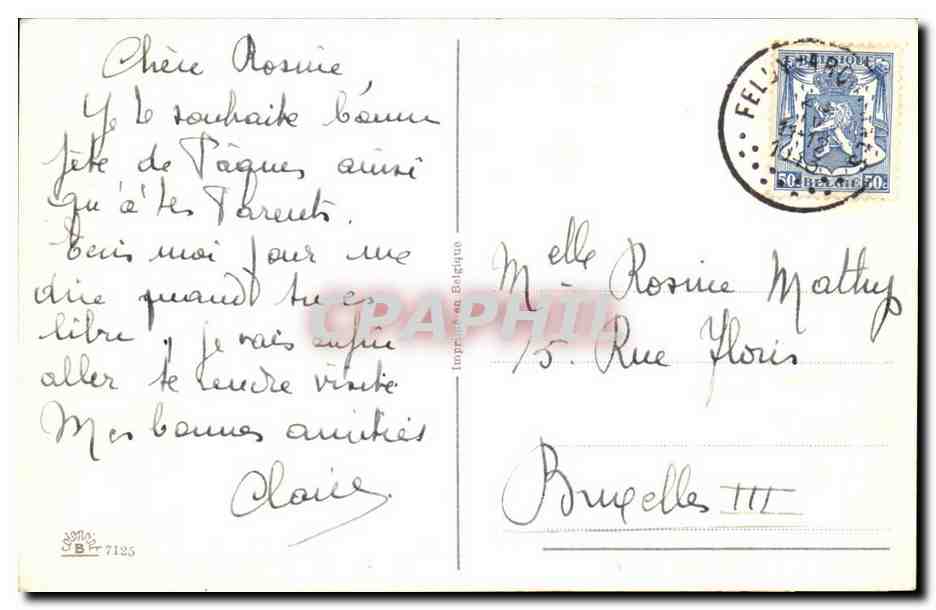 Chère Rosine,
Je te souhaite bonne
fête de Pâques ainsi
qu'à tes Parents.
Ecris moi pour me
dire quand tu es
libre, je vais enfin
aller te rendre visite
Mes bonnes amitiés
Claire.
B 7125
Imprimé en Belgique
CPAPHIL
FELUY-ARQ
BELGIQUE
50c BELGIË 50c
Melle Rosine Mathys
15. Rue Floris
Bruxelles III